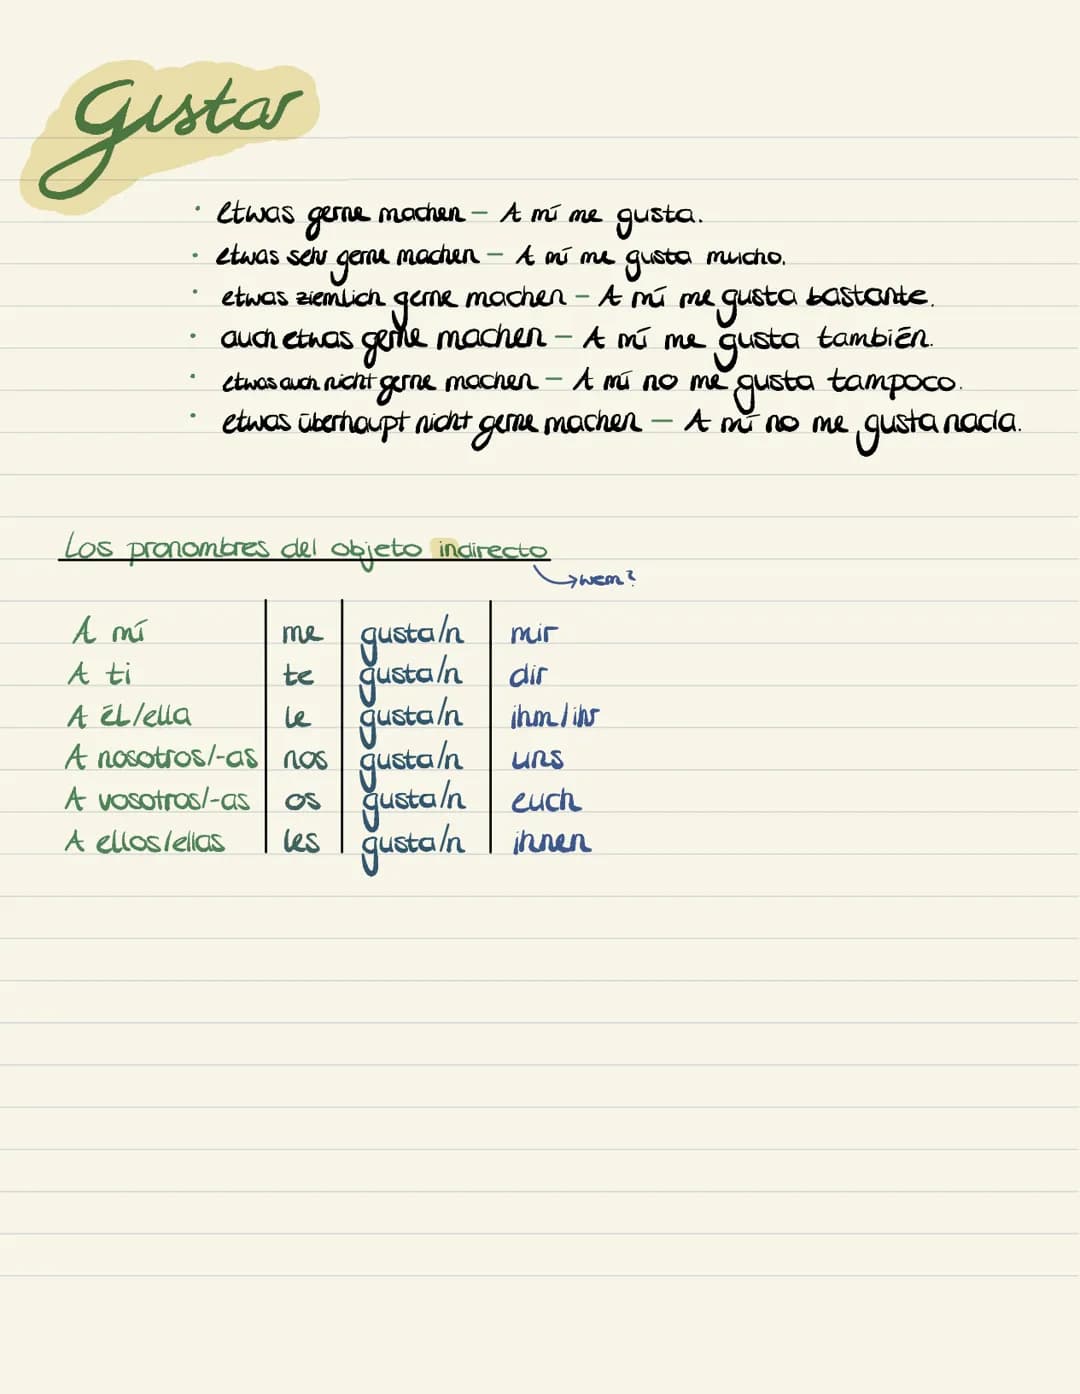 Gustar
· etwas gerne machen – A mí me gusta.
· etwas sehr gerne machen – A mí me gusta mucho.
· etwas ziemlich gerne machen – A mí me gusta bastante.
· auch etwas gerne machen – A mí me gusta también.
· etwas auch nicht gerne machen – A mí no me gusta tampoco.
· etwas überhaupt nicht gerne machen – A mí no me gusta nada.
Los pronombres del objeto indirecto
→ wem?
A mí me gusta/n mir
A ti te gusta/n dir
A él/ella le gusta/n ihm/ihr
A nosotros/-as nos gusta/n uns
A vosotros/-as os gusta/n euch
A ellos/ellas les gusta/n ihnen